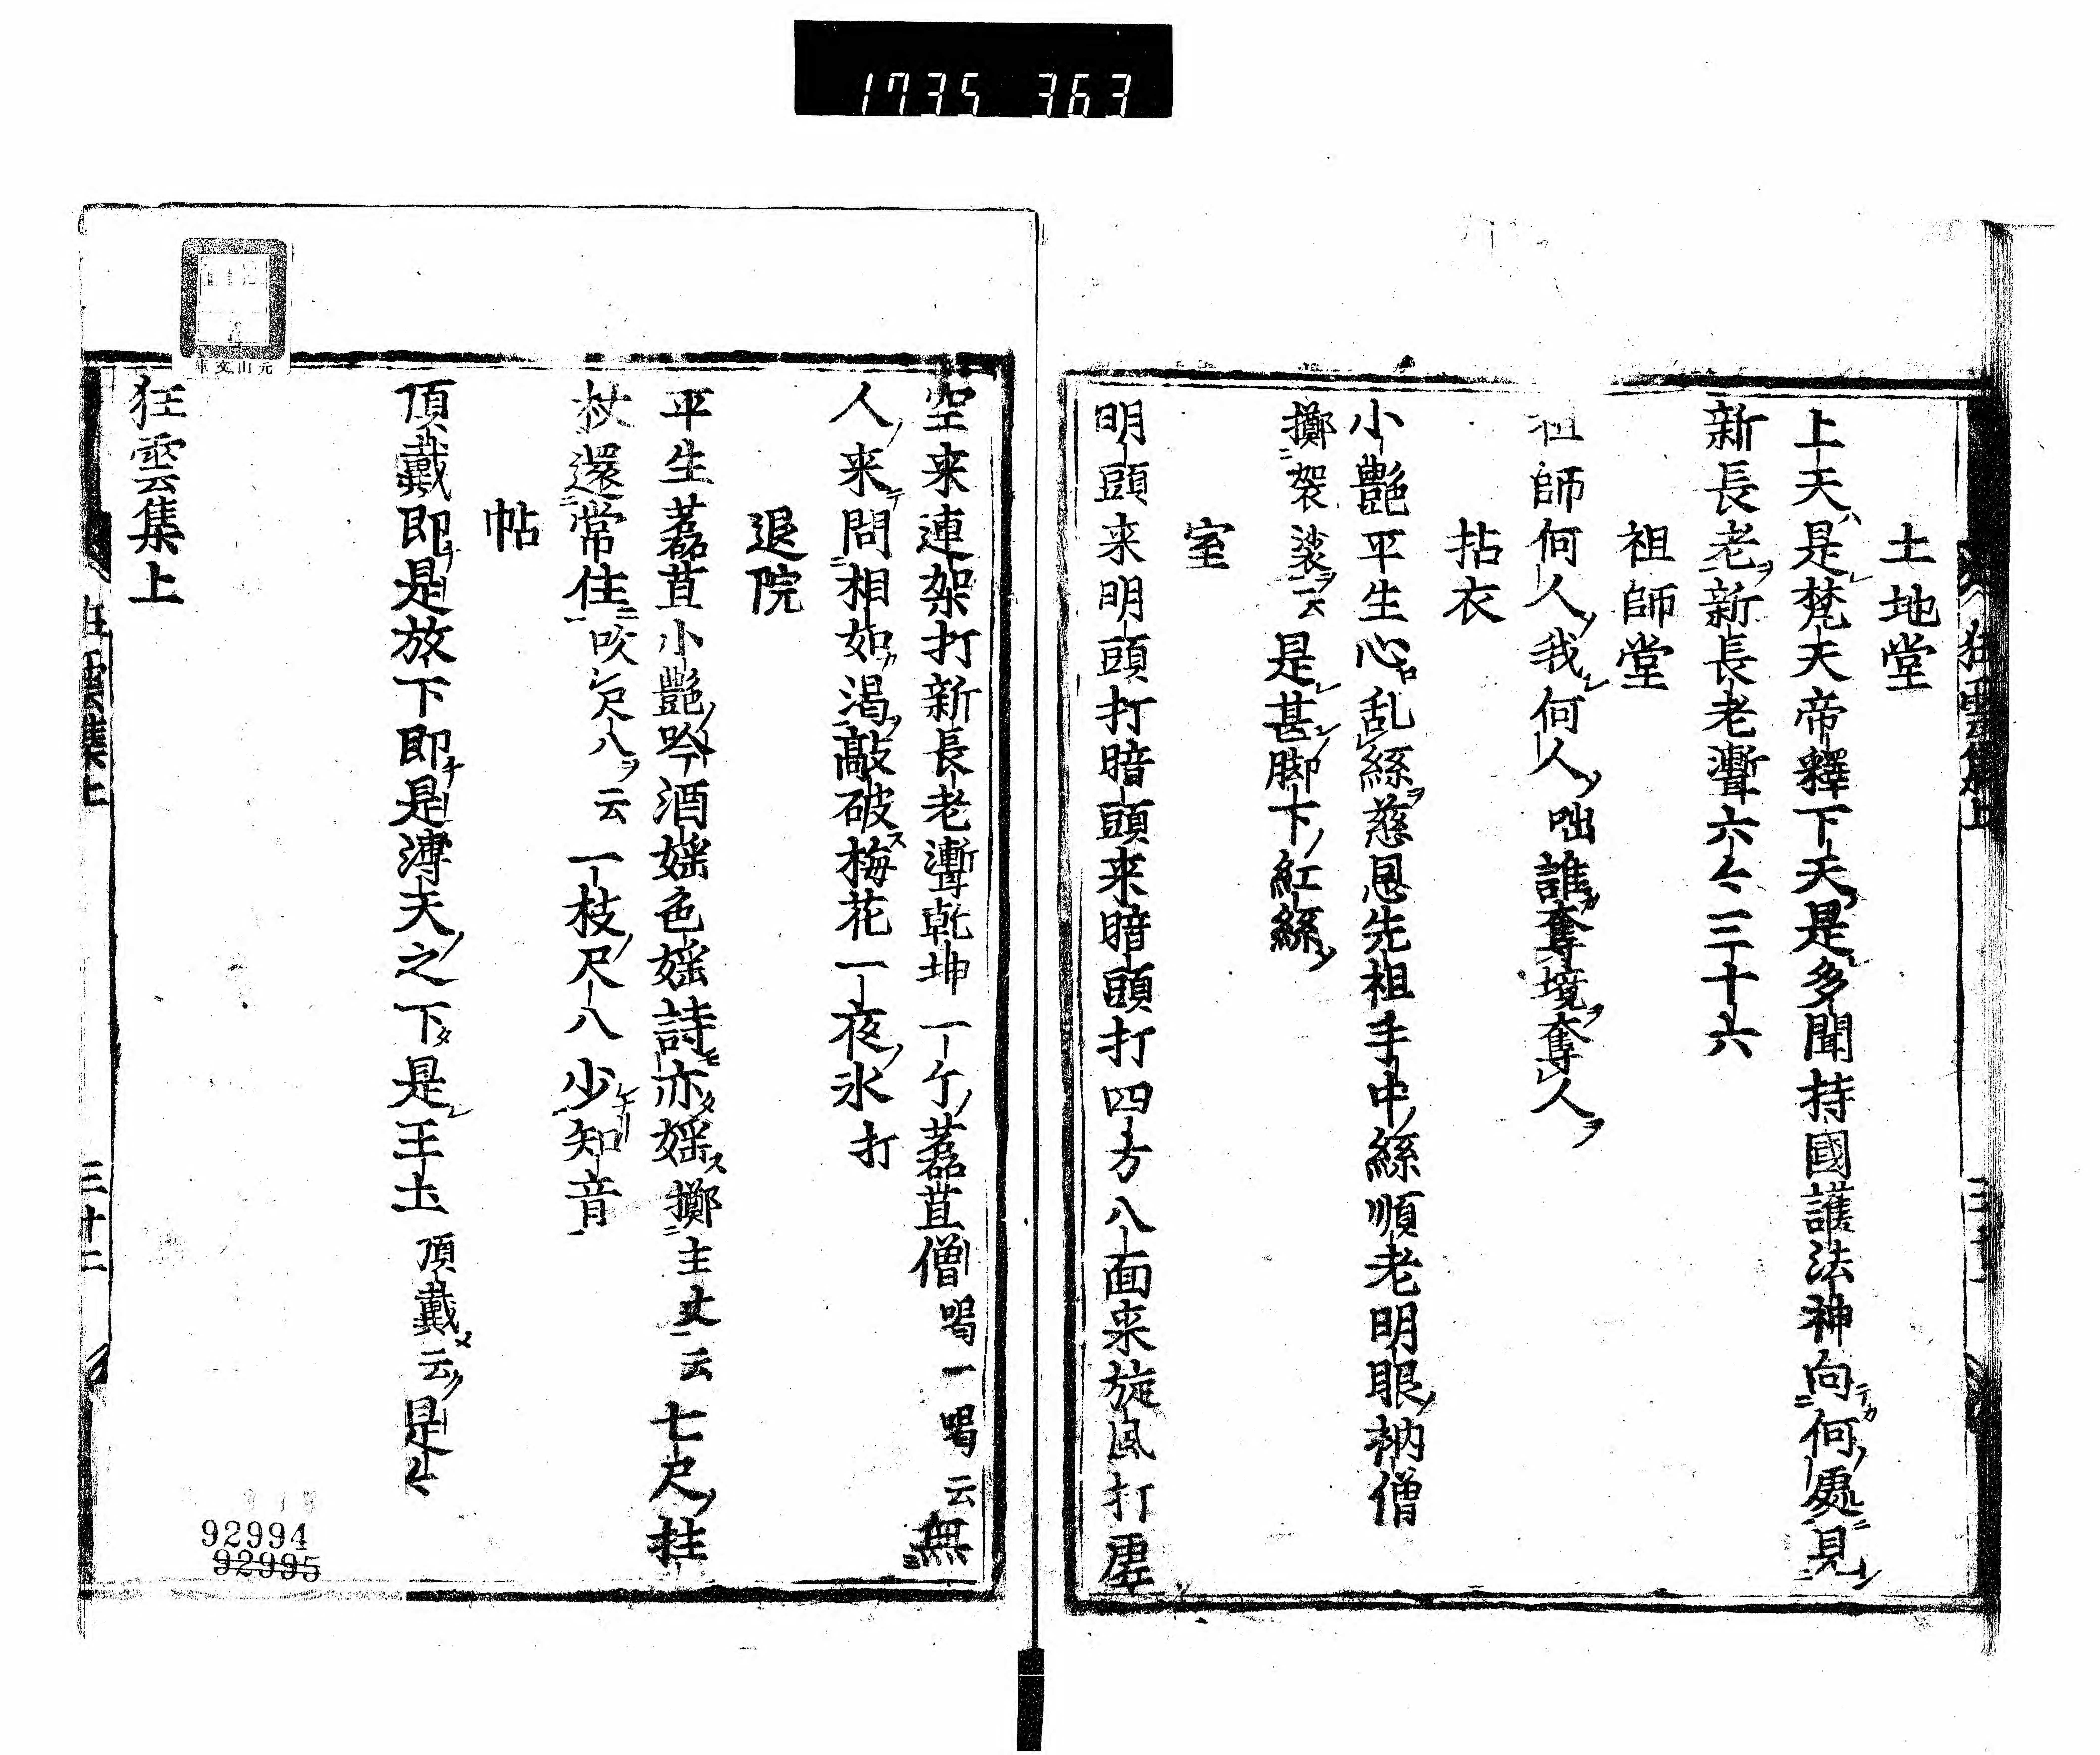 1735 363
土地堂
上天是梵天帝釋下天是多聞持國護法神向何處見
新長老新長老聻六々三十六
祖師堂
祖師何人我何人咄誰奪境奪人
拈衣
小艶平生心乱絲慈恩先祖手中絲順老明眼衲僧
擲袈裟云是甚脚下紅絲
室
明頭来明頭打暗頭来暗頭打四方八面来旋風打虚
空来連架打新長老聻乾坤一个藞苴僧喝一喝云無
人来問相如渇敲破梅花一夜氷打
退院
平生藞苴小艶吟酒婬色婬詩亦婬擲主丈云七尺拄
杖還常住吹尺八云一枝尺八少知音
帖
頂戴即是放下即是溥天之下是王土頂戴云是々
狂雲集上
狂雲集上
三十二
元山文庫
92994
92995